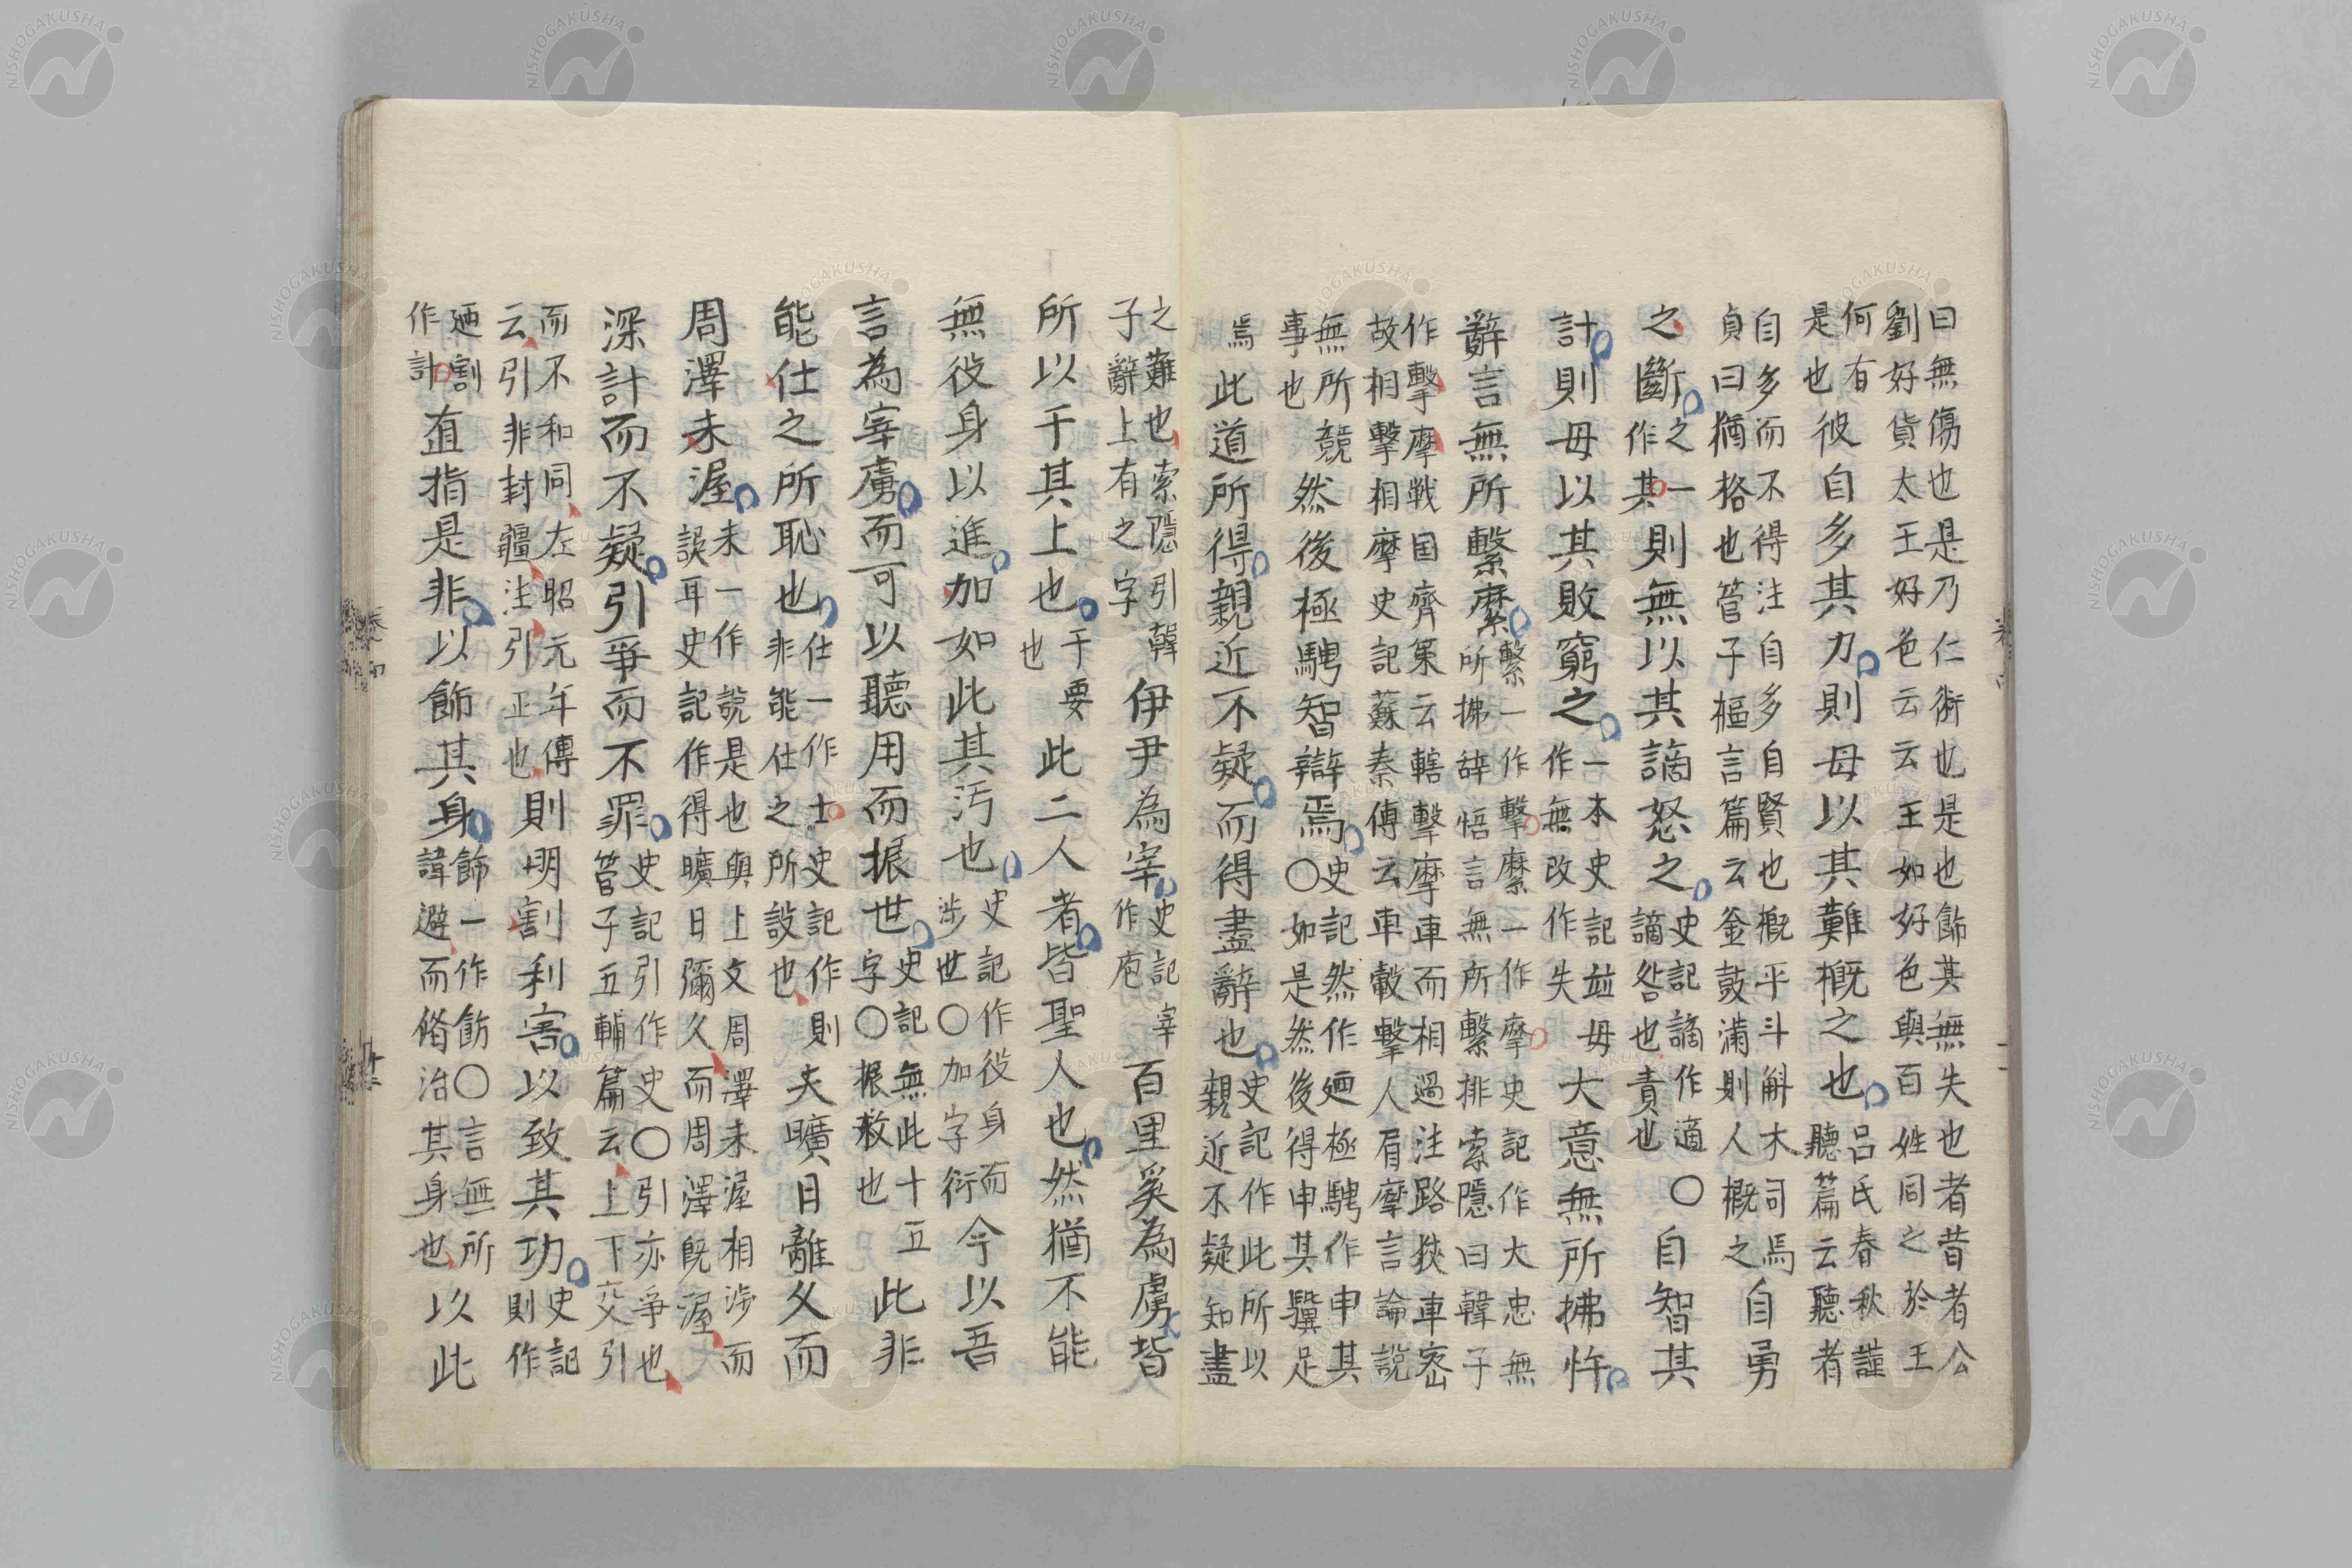 曰無傷也是乃仁術也是也飾其無失也者昔者公
劉好貨太王好色云云王如好色與百姓同之於王
何有
是也
彼自多其力則毋以其難概之也
呂氏春秋謹
聽篇云聽者
自多而不得注自多自賢也概平斗斛木司馬
貞曰猶格也管子樞言篇云釜鼓滿則人概之
自勇
之斷
之一
作其
則無以其謫怒之
史記謫作適〇
謫咎也責也
自智其
計則毋以其敗窮之
一本史記並毋
作無改作失
大意無所拂忤
辭言無所繫縻
繫一作擊縻一作摩史記作大忠無
所拂辞悟言無所繫排索隱曰韓子
作擊摩戦国齊策云轄擊摩車而相過注路狹車密
故相擊相摩史記蘇秦傳云車轂擊人肩摩言論說
無所競
事也
然後極騁智辯焉
史記然作廼極騁作申其
〇如是然後得申其驥足
焉
此道所得親近不疑而得盡辭也
史記作此所以
親近不疑知盡
之難也索隱引韓
子辭上有之字
伊尹為宰
史記宰
作庖
百里奚為虜皆
所以干其上也
干要
也
此二人者皆聖人也然猶不能
無役身以進加如此其汚也
史記作役身而
涉世〇加字衍
今以吾
言為宰虜而可以聽用而振世
史記無此十五
字〇振救也
此非
能仕之所恥也
仕一作士史記作則
非能仕之所設也
夫曠日離久而
周澤未渥
未一作説是也與上文周澤未渥相涉而
誤耳史記作得曠日彌久而周澤既渥
深計而不疑引爭而不罪
史記引作史〇引亦爭也
管子五輔篇云上下交引
而不和同左昭元年傳
云引非封疆注引正也
則明割利害以致其功
史記
則作
廼割
作計
直指是非以飾其身
飾一作飭〇言無所
諱避而脩治其身也
以此